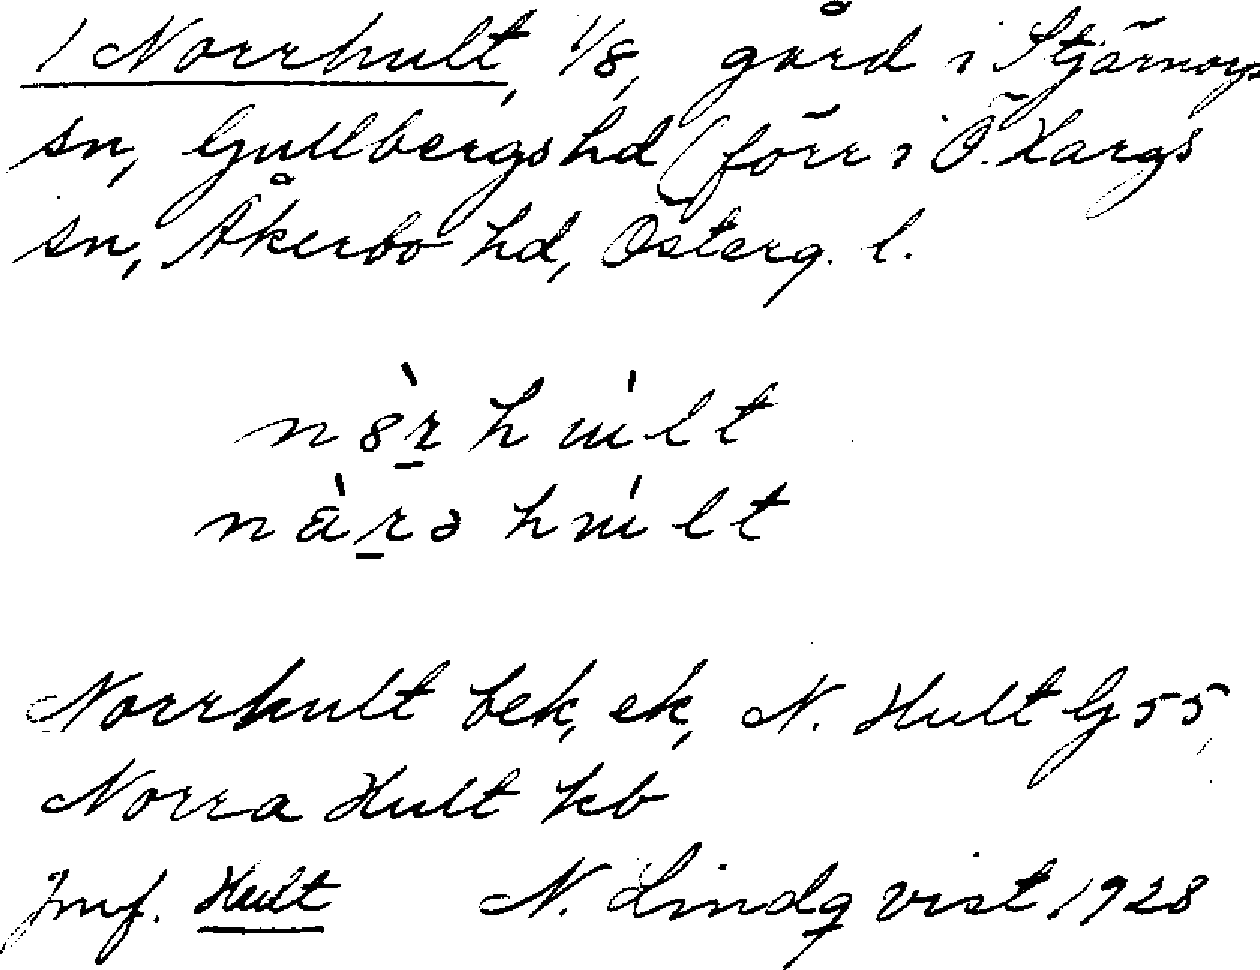 1 Norrhult, 1/8, gård i Stjärnorps
sn, Gullbergs hd (förr i Ö. Hargs
sn, Åkerbo hd, Österg. l.
Norrhult bek, ek, N. Hult G 55,
Norra Hult kb
Jmf. Hult N. Lindqvist 1928